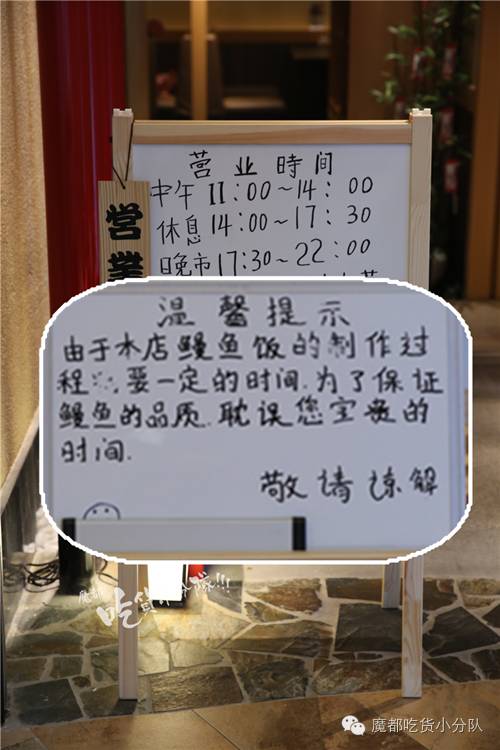 营业時间
中午 11:00~14:00
休息 14:00~17:30
日晚市 17:30~22:00
営業
温馨提示
由于本店鳗鱼饭的制作过
程 要一定的时间.为了保证
鳗鱼的品质.耽误您宝贵的
时间.
敬请谅解
吃货小分队!!!
魔都吃货小分队